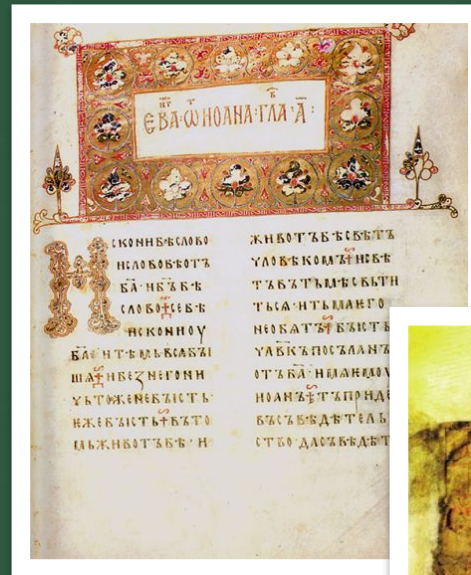 ЕВА·Ѡ ИОАНА·ГЛА·А҃:
ИСКОНИБѢСЛОВО
ИСЛОВОБѢОТЪ
БА҃·ИБ҃ЪБѢ
СЛОВО СЕБѢ
ИСКОНИОУ
БА҃ ИТѢМЬВЬСꙖБЫ
ШѦ ИБЕЗНЕГОНИ
ЧЬТОЖЕНЕБЫСТЬ·
ЕЖЕБЫСТЬ ВЪТО
МЬЖИВОТЪБѢ· И
ЖИВОТЪБѢСВѢТЪ
ЧЛОВѢКОМЪ ИСВѢ
ТЪВЪТЬМѢСВЬТИ
ТЬСѦ·ИТЬМАѤГО
НЕОБѨТЪ БЫСТЬ
ЧЛ҃ВКЪПОСЪЛАНЪ
ОТЪБА҃·ИМѦѤМОУ
ИОАНЪ ТЪПРИДЕ
ВЪСЪВѢДѢТЕЛЬ
СТВО·ДАСЪВѢДѢТ